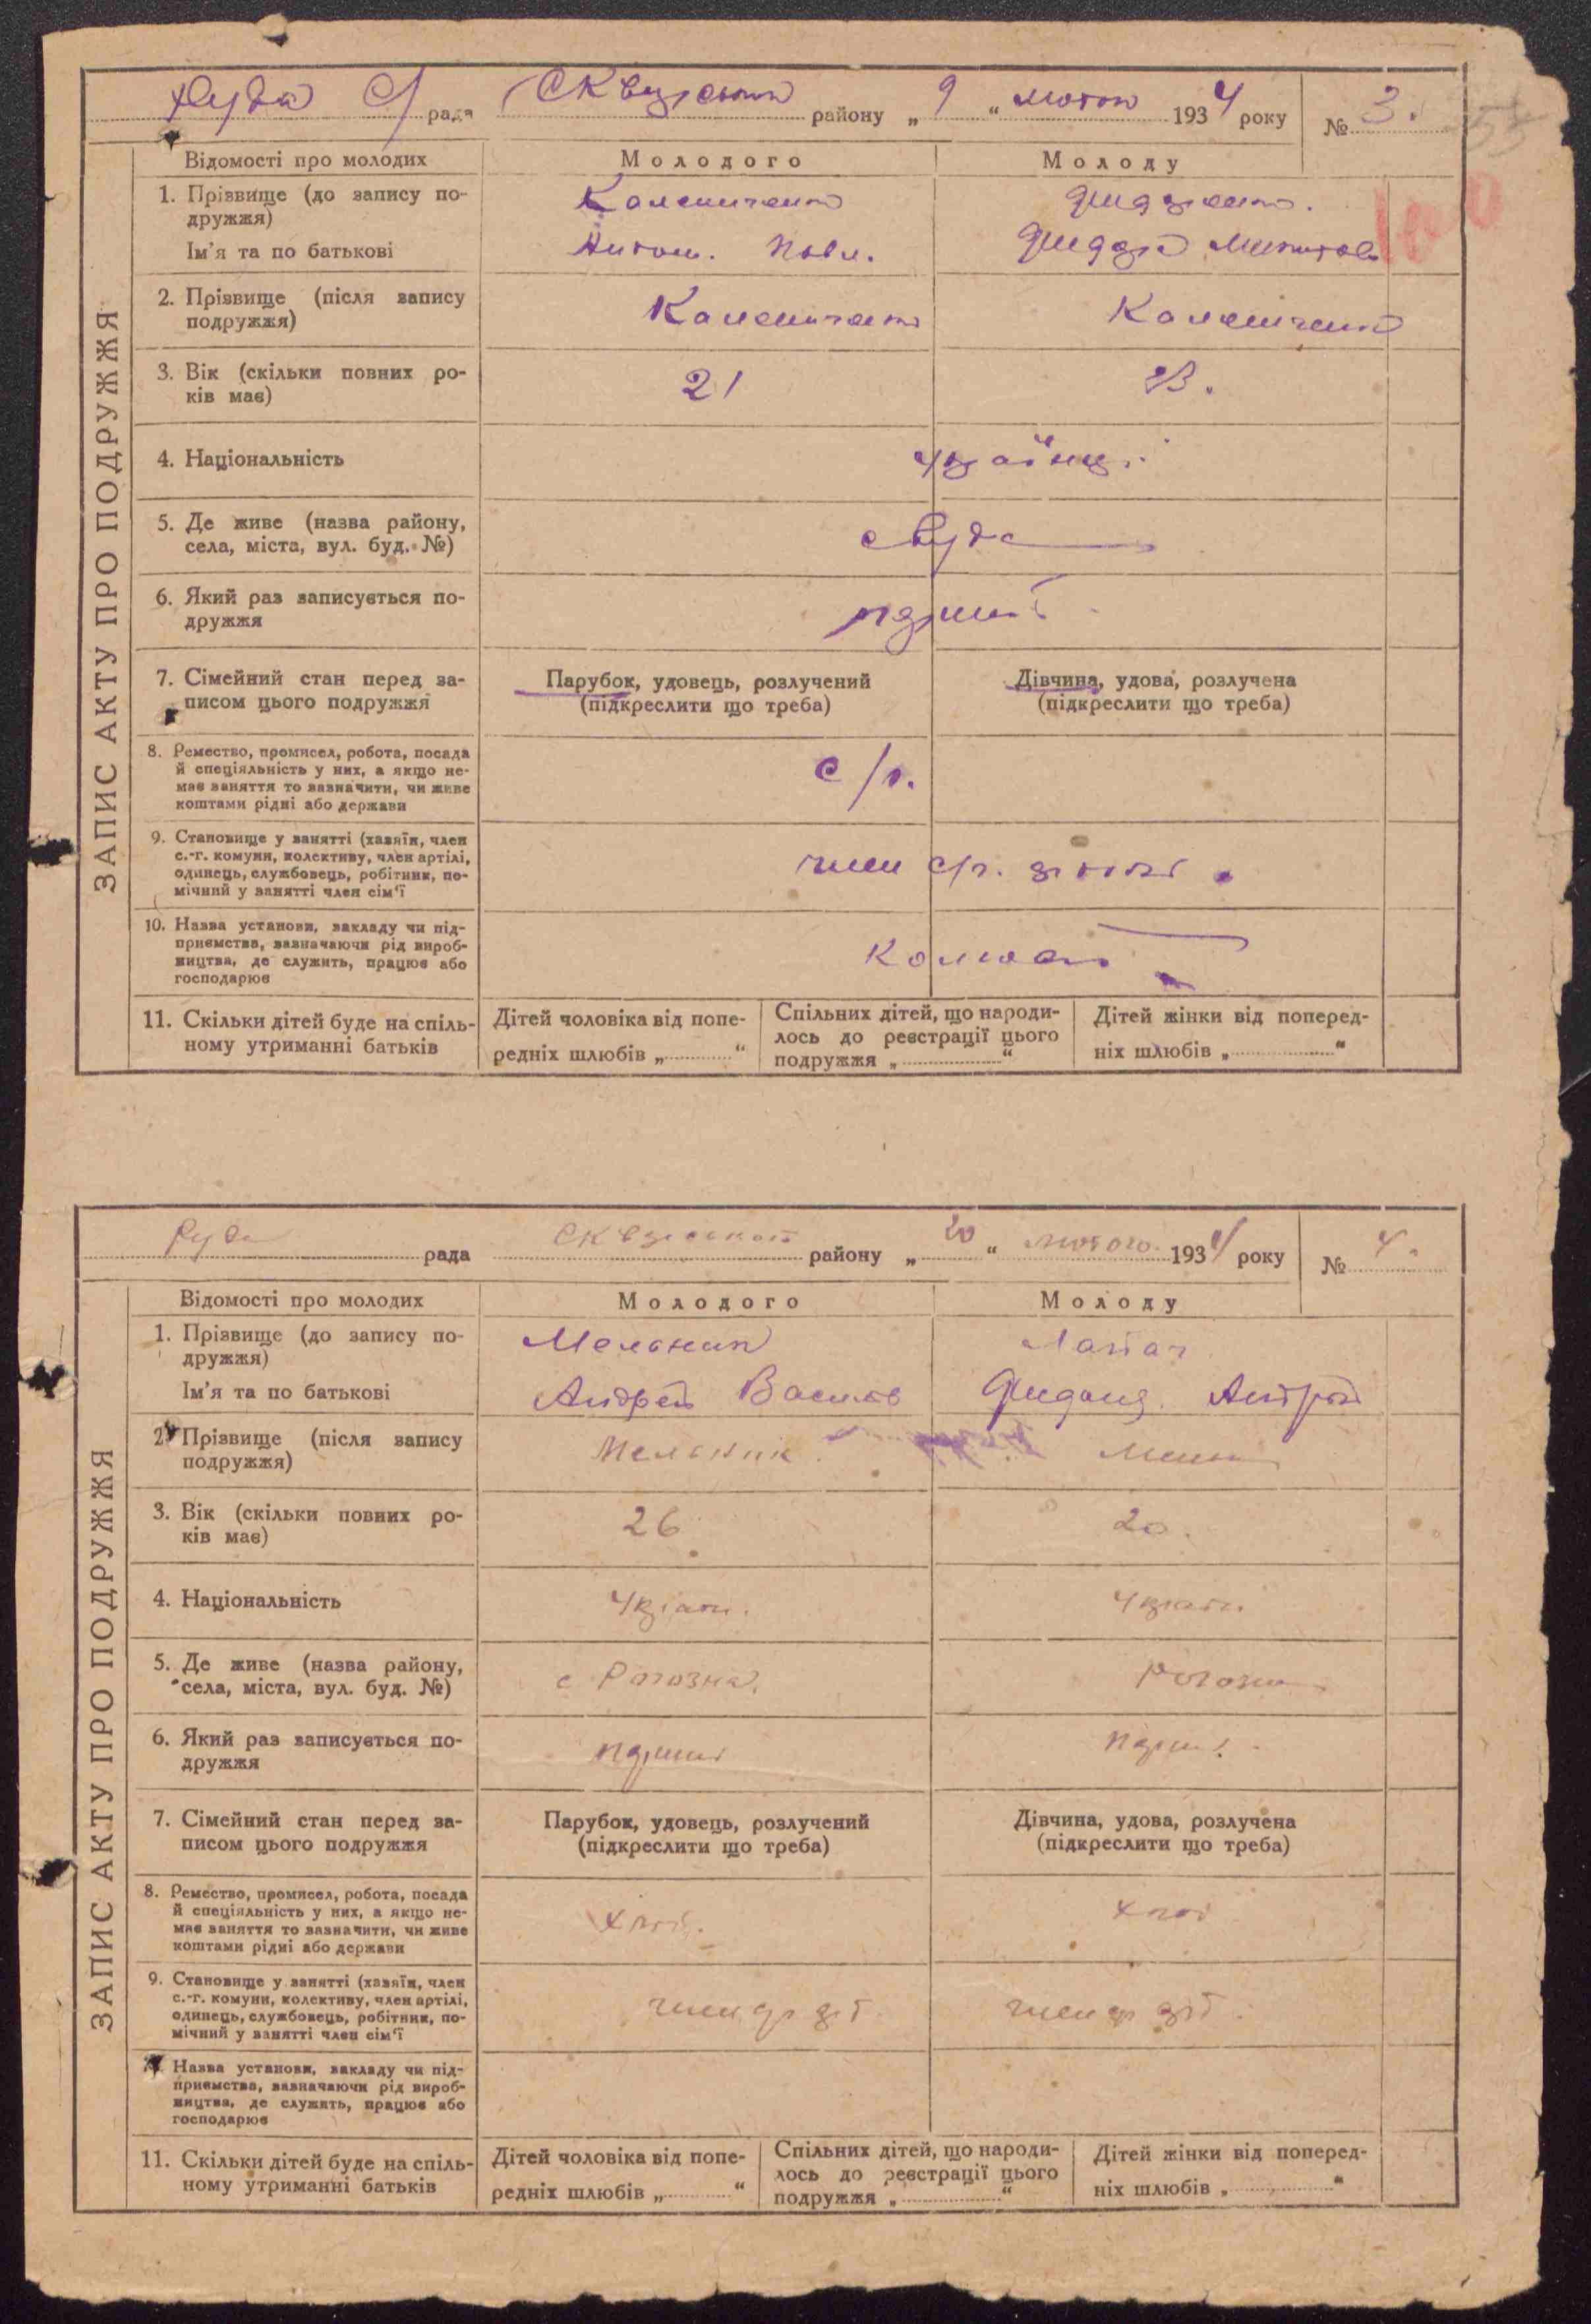 Руда с/рада Сквирськ району „ 9 “ лютого 1934 року № 3.
Відомості про молодих Молодого Молоду
1. Прізвище (до запису по-
дружжя)
Ім'я та по батькові
Антон. Павл.
2. Прізвище (після запису
подружжя)
3. Вік (скільки повних ро-
ків має)
21 23.
4. Національність
українці
5. Де живе (назва району,
села, міста, вул. буд. №)
с Руда
6. Який раз записується по-
дружжя
перший
7. Сімейний стан перед за-
писом цього подружжя
Парубок, удовець, розлучений
(підкреслити що треба)
Дівчина, удова, розлучена
(підкреслити що треба)
8. Ремество, промисел, робота, посада
й спеціяльність у них, а якщо не-
має заняття то зазначити, чи живе
коштами рідні або держави
9. Становище у занятті (хазяїн, член
с.-г. комуни, колективу, член артілі,
одинець, службовець, робітник, по-
мічний у занятті член сім'ї
член
10. Назва установи, закладу чи під-
приємства, зазначаючи рід вироб-
ництва, де служить, працює або
господарює
11. Скільки дітей буде на спіль-
ному утриманні батьків
Дітей чоловіка від попе-
редніх шлюбів „ “
Спільних дітей, що народи-
лось до реєстрації цього
подружжя „ “
Дітей жінки від поперед-
ніх шлюбів „ “
ЗАПИС АКТУ ПРО ПОДРУЖЖЯ
Руда рада Сквирськой району „ 20 “ лютого 1934 року № 4.
Відомості про молодих Молодого Молоду
1. Прізвище (до запису по-
дружжя)
Мельник
Ім'я та по батькові
Андрей Васильов Андрей
2. Прізвище (після запису
подружжя)
Мельник
3. Вік (скільки повних ро-
ків має)
26 20.
4. Національність
5. Де живе (назва району,
села, міста, вул. буд. №)
с Рогозна. Рогозна
6. Який раз записується по-
дружжя
перший перший
7. Сімейний стан перед за-
писом цього подружжя
Парубок, удовець, розлучений
(підкреслити що треба)
Дівчина, удова, розлучена
(підкреслити що треба)
8. Ремество, промисел, робота, посада
й спеціяльність у них, а якщо не-
має заняття то зазначити, чи живе
коштами рідні або держави
9. Становище у занятті (хазяїн, член
с.-г. комуни, колективу, член артілі,
одинець, службовець, робітник, по-
мічний у занятті член сім'ї
член член
Назва установи, закладу чи під-
приємства, зазначаючи рід вироб-
ництва, де служить, працює або
господарює
11. Скільки дітей буде на спіль-
ному утриманні батьків
Дітей чоловіка від попе-
редніх шлюбів „ “
Спільних дітей, що народи-
лось до реєстрації цього
подружжя „ “
Дітей жінки від поперед-
ніх шлюбів „ “
ЗАПИС АКТУ ПРО ПОДРУЖЖЯ